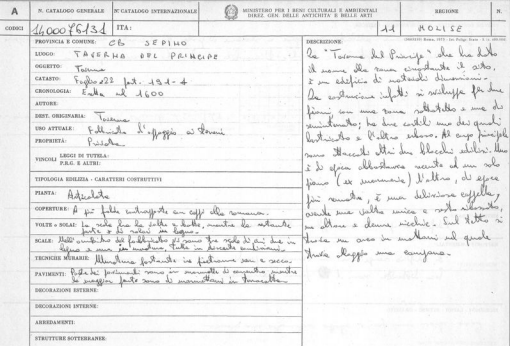 A
N. CATALOGO GENERALE
N. CATALOGO INTERNAZIONALE
MINISTERO PER I BENI CULTURALI E AMBIENTALI
DIREZ. GEN. DELLE ANTICHITÀ E BELLE ARTI
REGIONE
N.
CODICI
1400076131
ITA:
11
MOLISE
PROVINCIA E COMUNE: CB SEPINO
LUOGO: TAVERNA DEL PRINCIPE
OGGETTO: Taverna
CATASTO: Foglio 22 part. 191-1
CRONOLOGIA: 1600
AUTORE:
DEST. ORIGINARIA: Taverna
USO ATTUALE: Fabbricato d'appoggio ai terreni
PROPRIETÀ: Privata
VINCOLI
LEGGI DI TUTELA:
P.R.G. E ALTRI:
TIPOLOGIA EDILIZIA - CARATTERI COSTRUTTIVI
PIANTA: Articolata
COPERTURE: A più falde contrapposte con coppi alla romana.
VOLTE o SOLAI: La sola è a volta a botte, mentre la restante
parte è a solai in legno.
SCALE: Nell'ambito del fabbricato ci sono tre scale di cui due in
TECNICHE MURARIE: Muratura portante in pietrame
PAVIMENTI: pavimenti sono in cemento mentre
la maggior parte sono di in terracotta.
DECORAZIONI ESTERNE:
DECORAZIONI INTERNE:
ARREDAMENTI:
STRUTTURE SOTTERRANEE:
DESCRIZIONE:
La "Taverna del Principe" che ha dato
il nome alla zona circostante il sito,
è un edificio di notevoli dimensioni.
La costruzione infatti si sviluppa per due
piani, con una zona sottotetto e una di
seminterrato; ha due cortili uno dei quali
lastricato e l'altro erboso. Al corpo principale
sono staccati altri due blocchi edilizi. Uno
è di epoca abbastanza recente ad un solo
piano l'altro, di epoca
più remota, è una deliziosa cappella,
avente una volta unica e
un altare e nicchie. Sul tetto si
trova un arco in mattoni nel quale
trova alloggio una campana.